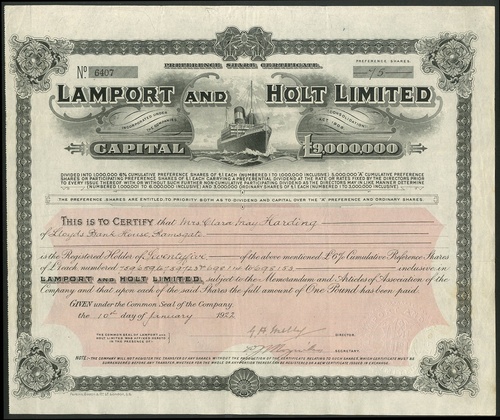 PREFERENCE SHARE CERTIFICATE.
No 6407
PREFERENCE SHARES
75
LAMPORT AND HOLT LIMITED
INCORPORATED UNDER THE COMPANIES (CONSOLIDATION) ACT 1908
CAPITAL £9,000,000
DIVIDED INTO 1,000,000 6% CUMULATIVE PREFERENCE SHARES OF £1 EACH (NUMBERED 1 TO 1,000,000 INCLUSIVE) 5,000,000 "A" CUMULATIVE PREFERENCE
SHARES OR PARTICIPATING PREFERENCE SHARES OF £1 EACH CARRYING A PREFERENTIAL DIVIDEND AT THE RATE OR RATES FIXED BY THE DIRECTORS PRIOR
TO EVERY ISSUE THEREOF WITH OR WITHOUT SUCH FURTHER NON CUMULATIVE PARTICIPATING DIVIDEND AS THE DIRECTORS MAY IN LIKE MANNER DETERMINE
(NUMBERED 1,000,001 TO 6,000,000 INCLUSIVE) AND 3,000,000 ORDINARY SHARES OF £1 EACH (NUMBERED 1 TO 3,000,000 INCLUSIVE)
THE PREFERENCE SHARES ARE ENTITLED TO PRIORITY BOTH AS TO DIVIDENDS AND CAPITAL OVER THE "A" PREFERENCE AND ORDINARY SHARES.
THIS IS TO CERTIFY that Mrs Clara May Harding
of Lloyds Bank House, Ramsgate
is the Registered Holder of Seventyfive of the above mentioned £6% Cumulative Preference Shares
of £1 each numbered inclusive in
LAMPORT AND HOLT LIMITED, subject to the Memorandum and Articles of Association of the
Company and that upon each of the said Shares the full amount of One Pound has been paid.
GIVEN under the Common Seal of the Company,
the 10th day of January
THE COMMON SEAL OF LAMPORT AND
HOLT LIMITED WAS AFFIXED HERETO
IN THE PRESENCE OF:
DIRECTOR.
SECRETARY.
THE COMPANY WILL NOT REGISTER THE TRANSFER OF ANY SHARES WITHOUT THE PRODUCTION OF THE CERTIFICATE RELATING TO SUCH SHARES, WHICH CERTIFICATE MUST BE
SURRENDERED BEFORE ANY TRANSFER, WHETHER FOR THE WHOLE OR ANY PORTION THEREOF CAN BE REGISTERED OR A NEW CERTIFICATE ISSUED IN EXCHANGE.